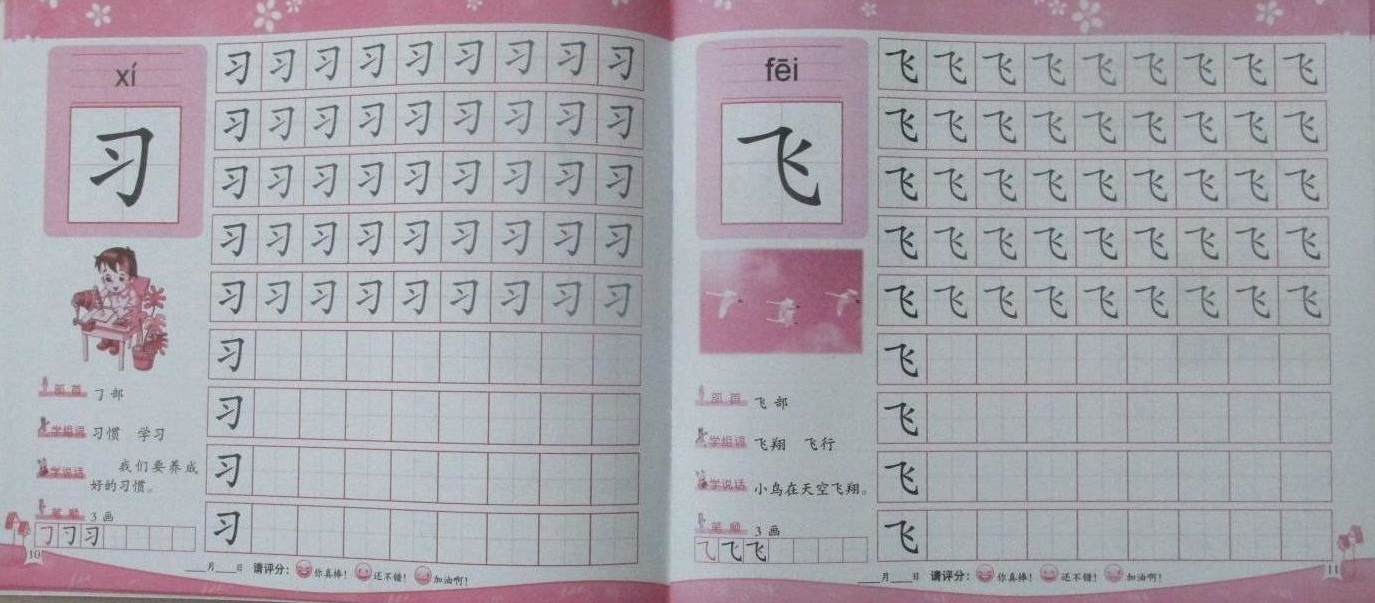 xí
习
习 习 习 习 习 习 习 习 习
习 习 习 习 习 习 习 习 习
习 习 习 习 习 习 习 习 习
习 习 习 习 习 习 习 习 习
习 习 习 习 习 习 习 习 习
习
习
习
习
部首 𠃌部
学组词 习惯 学习
学说话 我们要养成
好的习惯。
笔顺 3画
𠃌 刁 习
10
____月____日 请评分: 你真棒! 还不错! 加油啊!
fēi
飞
飞 飞 飞 飞 飞 飞 飞 飞 飞
飞 飞 飞 飞 飞 飞 飞 飞 飞
飞 飞 飞 飞 飞 飞 飞 飞 飞
飞 飞 飞 飞 飞 飞 飞 飞 飞
飞 飞 飞 飞 飞 飞 飞 飞 飞
飞
飞
飞
飞
部首 飞部
学组词 飞翔 飞行
学说话 小鸟在天空飞翔。
笔顺 3画
⺄ 飞 飞
____月____日 请评分: 你真棒! 还不错! 加油啊!
11